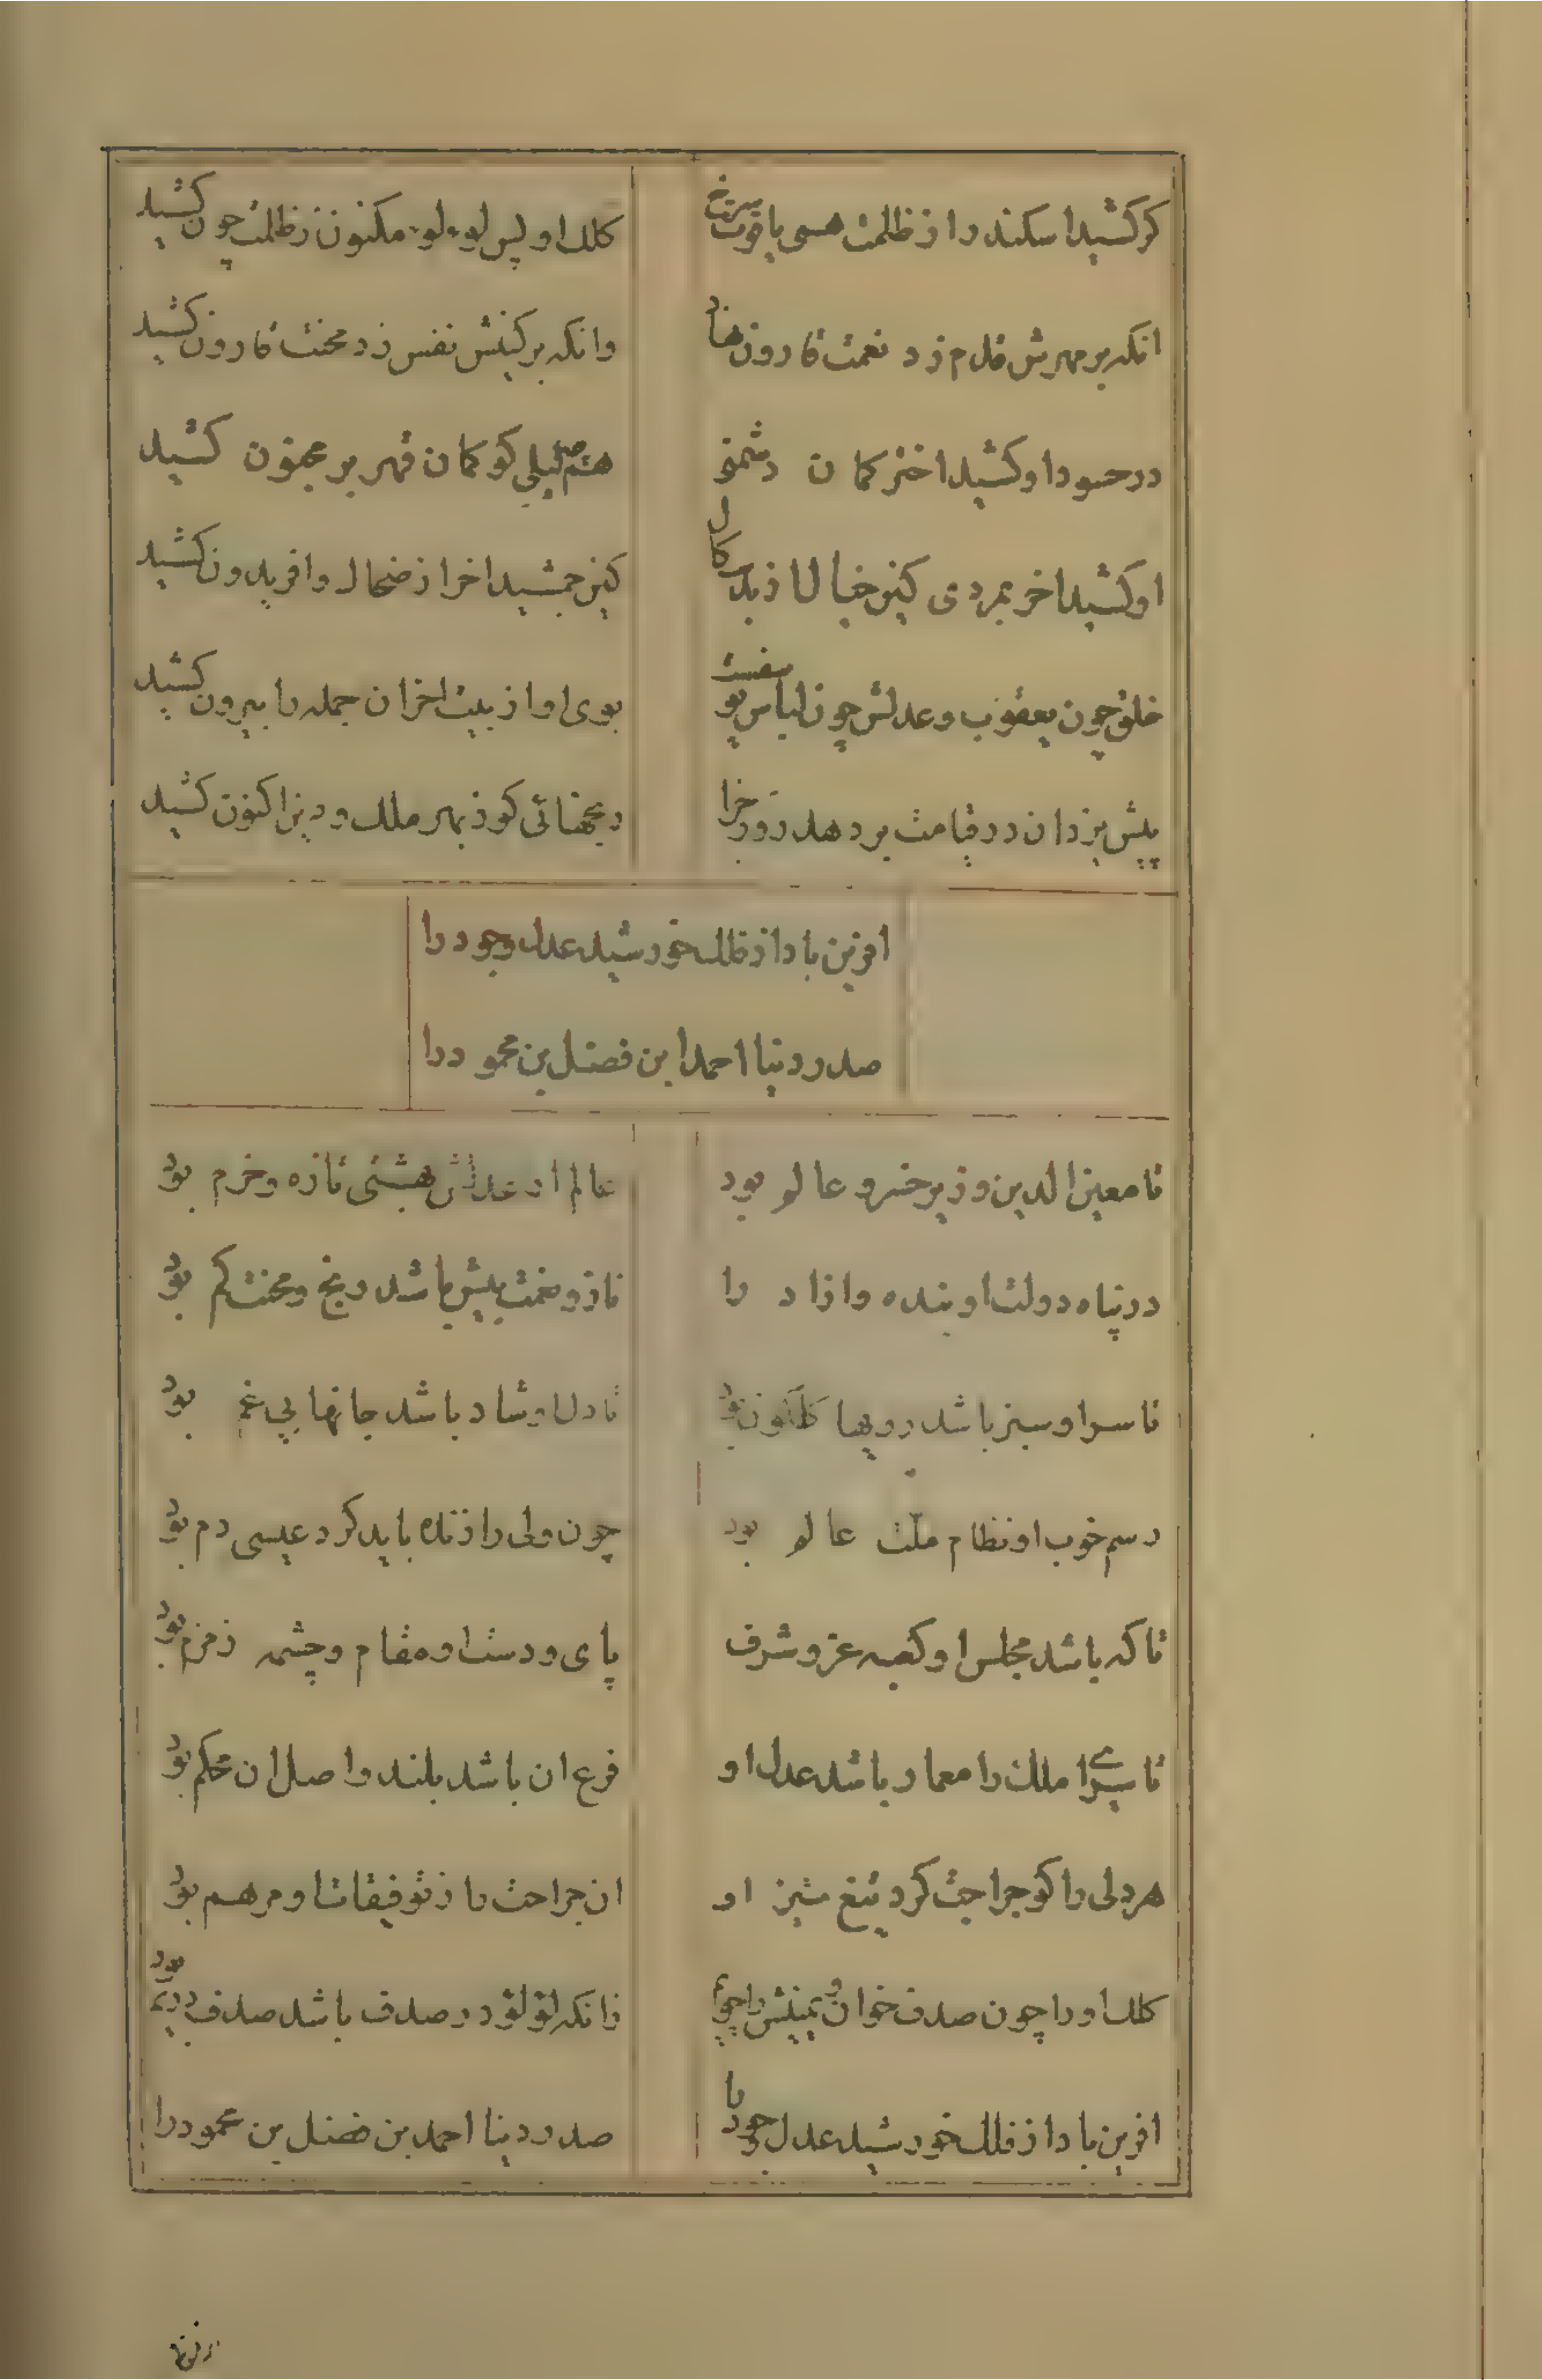 کر کشید اسکندر از ظلمت همی یاقوت سرخ
کلک او پس لوءلوء مکنون ز ظلمت چون کشید
انکه بر مهرش قدم زد نعمت قارون نهاد
وانکه بر کینش نفس زد محنت قارون کشید
در حسود او کشید اختر کمان دشمنی
همچو لیلی کو کمان قهر بر مجنون کشید
او کشید اخر بمردی کین خیال از بدسکال
کین جمشید اخر از ضحاک وافریدون کشید
خلق چون یعقوب وعدلش چون لباس یوسفست
بوی او از بیت احزان جمله را بیرون کشید
پیش یزدان در قیامت بر دهد روز جزا
رنجهائی کو ز بهر ملک ودین اکنون کشید
افرین باد از فلک خورشید عدل وجود را
صدر دنیا احمد ابن فضل بن محمود را
تا معین الدین وزیر خسرو عالم بود
عالم از عدلش بهشتی تازه وخرم بود
در پناه دولت او بنده وازاد را
ناز ونعمت بیش باشد رنج ومحنت کم بود
تا سر او سبز باشد رویها کلکون بود
تا دل او شاد باشد جانها بی غم بود
رسم خوب او نظام ملّت عالم بود
چون ولی را زنده باید کرد عیسی دم بود
تا که باشد مجلس او کعبه عز وشرف
پای ودست او مقام وچشمه زمزم بود
تا سرای ملک را معمار باشد عدل او
فرع ان باشد بلند واصل ان محکم بود
هر دلی را کو جراحت کرد تیغ تیز او
ان جراحت را ز توفیقات او مرهم بود
کلک او را چون صدف خوان ویمینش را چو یم
زانکه لؤلؤ در صدف باشد صدف در یم بود
افرین باد از فلک خورشید عدل وجود را
صدر دنیا احمد بن فضل بن محمود را